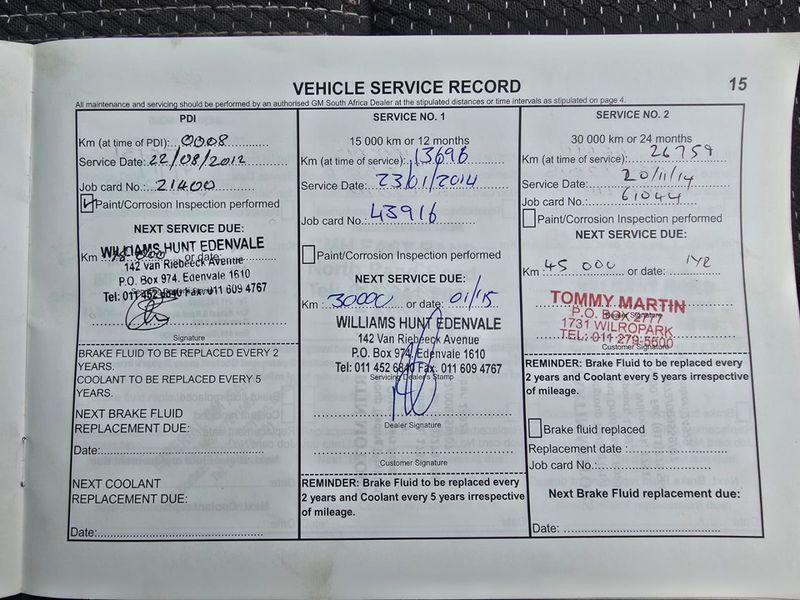 VEHICLE SERVICE RECORD
15
All maintenance and servicing should be performed by an authorised GM South Africa Dealer at the stipulated distances or time intervals as stipulated on page 4.
PDI
Km (at time of PDI): 0008
Service Date: 22/08/2012
Job card No.: 21400
Paint/Corrosion Inspection performed
NEXT SERVICE DUE:
Km or date:
WILLIAMS HUNT EDENVALE
142 van Riebeeck Avenue
P.O. Box 974, Edenvale 1610
Tel: 011 452 6840 Fax: 011 609 4767
Signature
BRAKE FLUID TO BE REPLACED EVERY 2
YEARS.
COOLANT TO BE REPLACED EVERY 5
YEARS.
NEXT BRAKE FLUID
REPLACEMENT DUE:
Date:
NEXT COOLANT
REPLACEMENT DUE:
Date:
SERVICE NO. 1
15 000 km or 12 months
Km (at time of service): 13696
Service Date: 23/01/2014
Job card No.: 43916
Paint/Corrosion Inspection performed
NEXT SERVICE DUE:
Km 30000 or date: 01/15
WILLIAMS HUNT EDENVALE
142 Van Riebeeck Avenue
P.O. Box 974, Edenvale 1610
Tel: 011 452 6840 Fax: 011 609 4767
Servicing Dealer's Stamp
Dealer Signature
Customer Signature
REMINDER: Brake Fluid to be replaced every
2 years and Coolant every 5 years irrespective
of mileage.
SERVICE NO. 2
30 000 km or 24 months
Km (at time of service): 26759
Service Date: 20/11/14
Job card No.: 61044
Paint/Corrosion Inspection performed
NEXT SERVICE DUE:
Km 45 000 or date: 1YR
TOMMY MARTIN
P.O. Box 277
1731 WILROPARK
TEL: 011 279-5600
Customer Signature
REMINDER: Brake Fluid to be replaced every
2 years and Coolant every 5 years irrespective
of mileage.
Brake fluid replaced
Replacement date :
Job card No.:
Next Brake Fluid replacement due:
Date: